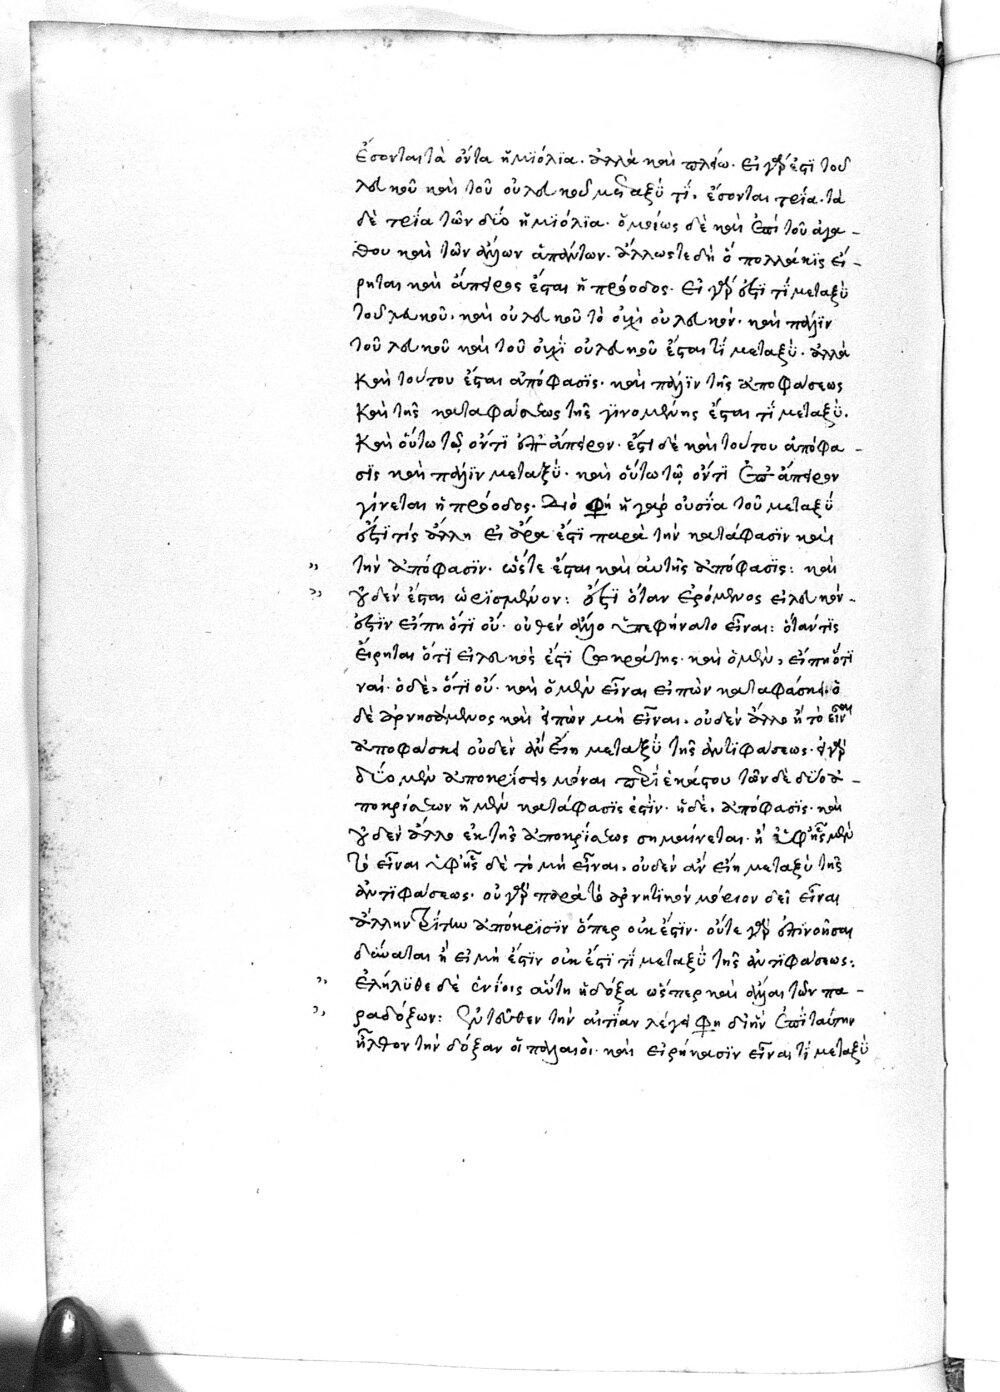 ἔσονται τὰ ὄντα ἡμϊόλϊα. ἀλλὰ καὶ πλείω. εἰ γάρ ἐστι τοῦ
λευκοῦ καὶ τοῦ οὐ λευκοῦ μεταξύ τί, ἔσονται τρία. τὰ
δὲ τρία τῶν δύο ἡμϊόλϊα. ὁμοίως δὲ καὶ ἐπὶ τοῦ ἀγα-
θου καὶ τῶν ἄλλων ἁπάντων. ἄλλως τε δὴ ὃ πολλάκις εἴ-
ρηται καὶ ἄπειρος ἔσται ἡ πρόοδος. εἰ γάρ ἐστί τϊ μεταξὺ
τοῦ λευκοῦ, καὶ οὐ λευκοῦ τὸ οὐχὶ οὐ λευκόν. καὶ πάλϊν
τοῦ λευκοῦ καὶ τοῦ οὐχὶ οὐ λευκοῦ ἔσται τϊ μεταξύ. ἀλλὰ
καὶ τούτου ἔσται ἀπόφασϊς. καὶ πάλϊν τῆς ἀποφάσεως
καὶ τῆς καταφάσεως τῆς γϊνομένης ἔσται τϊ μεταξύ.
καὶ οὕτω τῷ ὄντϊ ἐπ' ἄπειρον. ἔστι δὲ καὶ τούτου ἀπόφα-
σϊς καὶ πάλϊν μεταξύ. καὶ οὕτω τῷ ὄντϊ ἐπ' ἄπειρον
γίνεται ἡ πρόοδος. διό φη ἡ γάρ οὐσία τοῦ μεταξύ
ἐστί τίς ἄλλη εἰ ἄρα ἐστὶ παρὰ τὴν κατάφασϊν καὶ
τὴν ἀπόφασϊν. ὥστε ἔσται καὶ αὐτῆς ἀπόφασϊς: καὶ
οὐδεν ἔσται ὡρϊσμένον: ἔτι ὅταν ἐρόμενος εἰ λευκόν.
ἐστϊν εἴπη ὅτι οὐ. οὐθεν ἄλλο ἀπεφήνατο εἶναι: ὅταν τϊς
ἔρηται ὅτϊ εἰ λευκός ἐστϊ Σωκράτης. καὶ ὁ μὲν, εἴπη ὅτϊ
ναί. ὁ δὲ, ὅτι οὔ. καὶ ὁ μὲν εἶναι εἰπὼν καταφάσκει. ὁ
δὲ ἀρνησάμενος καὶ εἰπὼν μὴ εἶναι, οὐδεν ἄλλο ἢ τὸ εἶναι
ἀποφάσκει οὐδεν ἂν εἴη μεταξὺ τῆς ἀντϊφάσεως. εἰ γὰρ
δύο μὲν ἀποκρίσεις μόναι περὶ ἑκάστου τῶν δὲ δύο ἀ-
ποκρίσεων ἡ μὲν κατάφασϊς ἐστϊν. ἡ δὲ, ἀπόφασϊς. καὶ
οὐδεν ἄλλο ἐκ τῆς ἀποκρίσεως σημαίνεται. ἢ ἐφ' ἧς μὲν
τὸ εἶναι ἐφ' ἧς δὲ τὸ μὴ εἶναι, οὐδεν ἂν εἴη μεταξὺ τῆς
ἀντϊφάσεως. οὐ γὰρ παρὰ τὸ ἀρνητϊκὸν μόριον δεῖ εἶναι
ἄλλην τρίτην ἀπόκρϊσϊν ὅπερ οὐκ ἔστϊν. οὔτε γὰρ ἐπϊνοῆσαι
δύναται ἢ εἰ μὴ ἔστϊν οὐκ ἔστϊ τϊ μεταξὺ τῆς ἀντϊφάσεως:
ἐλήλϋθε δὲ ἐνίοις αὕτη ἡ δόξα ὥσπερ καὶ ἄλλαι τῶν πα-
ραδόξων: ἐντεῦθεν τὴν αἰτίαν λέγει φη δι' ἣν ἐπὶ ταύτην
ἦλθον τὴν δόξαν οἱ παλαιοὶ. καὶ εἰρήκασϊν εἶναι τϊ μεταξὺ